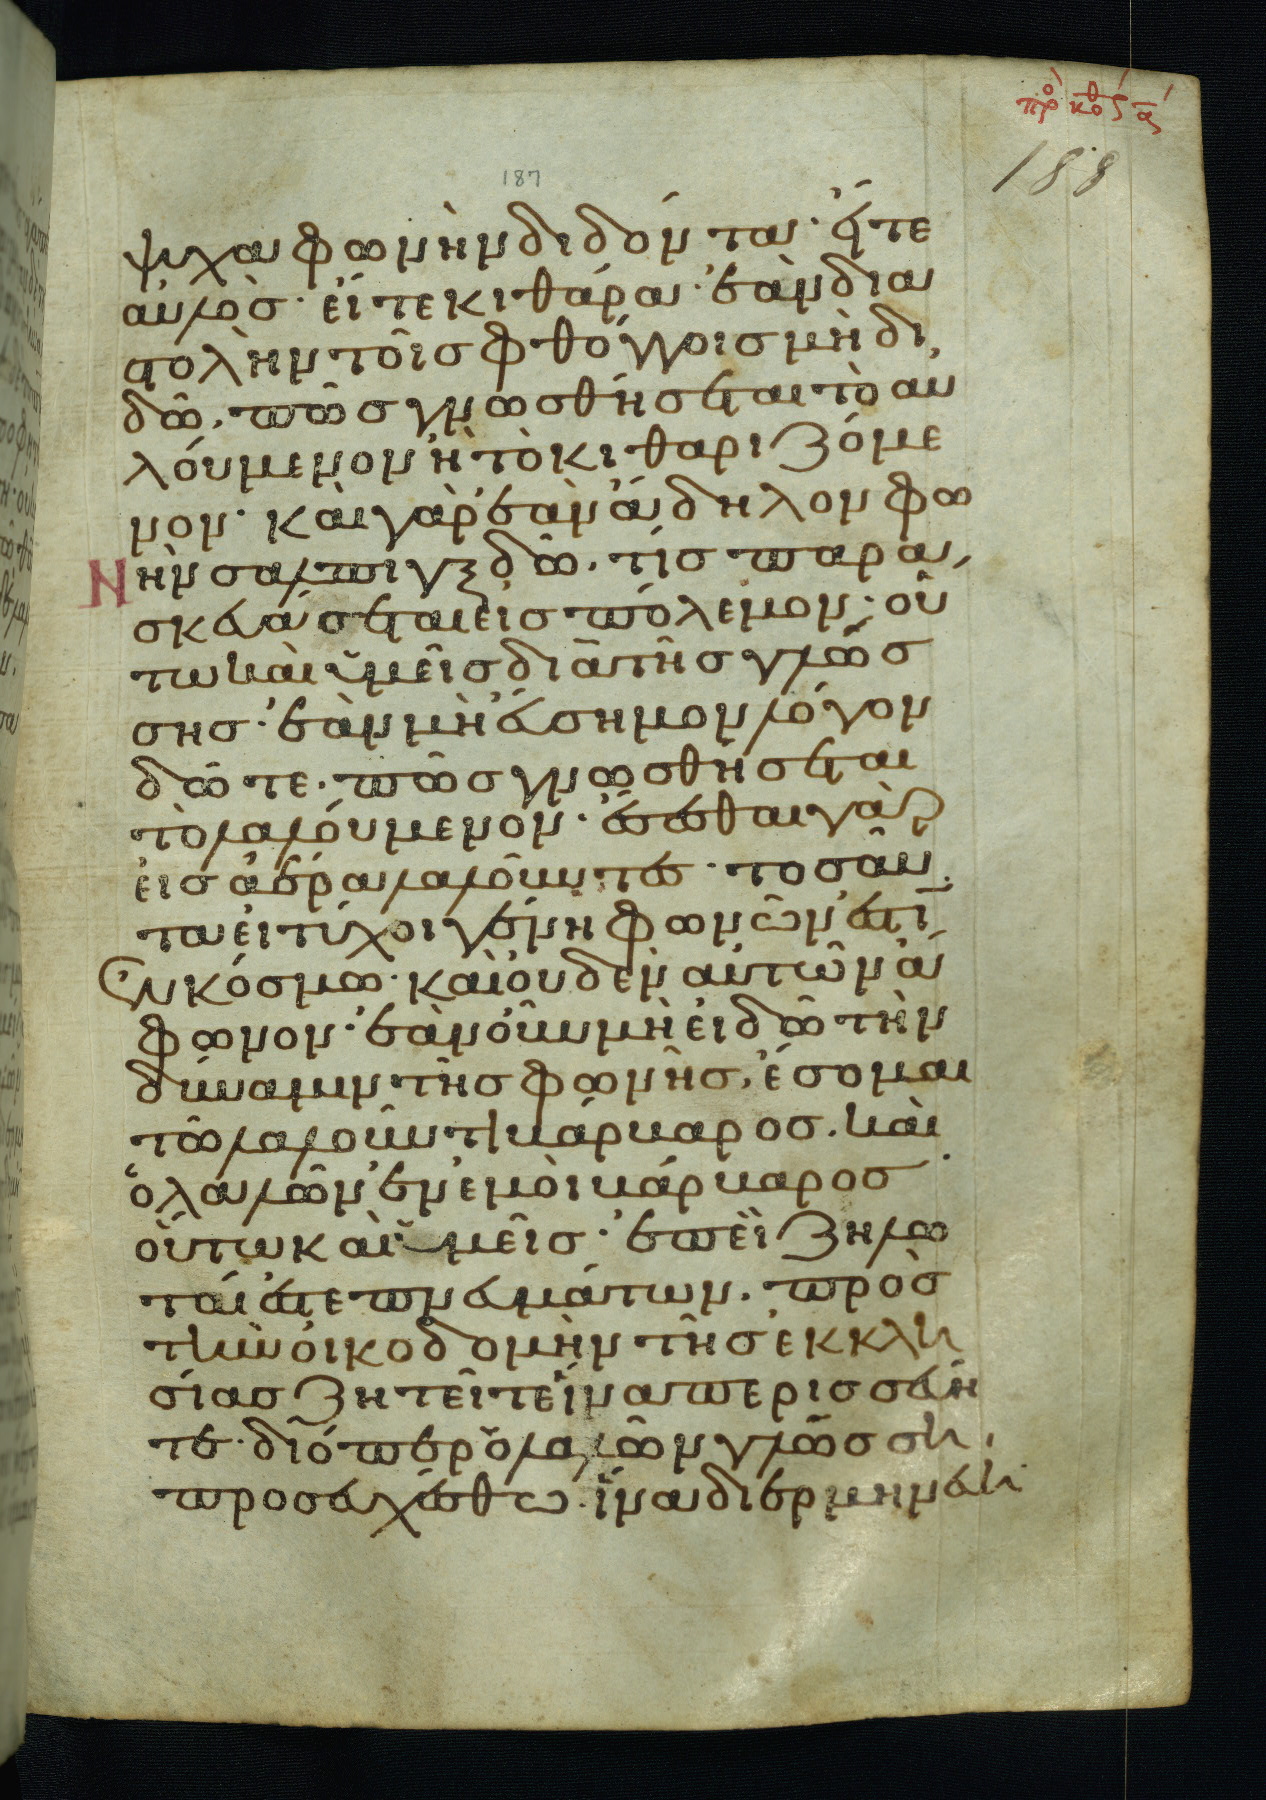 πρ κορ ας
188
187
ψυχα φωνὴν διδόντα· εἴτε
αὐλὸσ· εἴτε κιθάρα· ἐὰν δια
στολὴν τοῖσ φθόγγοισ μὴ δι,
δῶ, πῶσ γνωσθήσεται τὸ αυ
λούμενον ἢ τὸ κιθαριζόμε
νον· καὶ γὰρ ἐὰν ἄδηλον φω
νὴν σαλπιγξ δῶ. τίσ παρα,
σκευάσεται εἰσ πόλεμον; οὕ
τω καὶ ὑμεῖσ διὰ τῆσ γλώσ
σησ· ἐὰν μὴ εὔσημον λόγον
δῶτε. πῶσ γνωσθήσεται
τὸ λαλούμενον· ἔσεσθαι γὰρ
εἰσ ἀέρα λαλοῦντεσ· τοσαῦ,
τα εἰ τύχοι γένη φωνῶν ἐστὶ
ἐν κόσμω· καὶ οὐδὲν αὐτῶν ἄ
φωνον· ἐὰν οὖν μὴ εἰδῶ τὴν
δύναμιν τῆσ φωνῆσ, ἔσομαι
τῶ λαλοῦντι βάρβαροσ. καὶ
ὁ λαλῶν ἐν ἐμοὶ βάρβαροσ
οὕτω καὶ ὑμεῖσ· ἐπεὶ ζηλω
ταί ἐστε πνευμάτων. πρὸσ
τὴν οἰκοδομὴν τῆσ ἐκκλη
σίασ ζητεῖτε ἵνα περισσεύη
τε· διόπερ ὁ λαλῶν γλώσση,
προσευχέσθω. ἵνα διερμηνεύη·